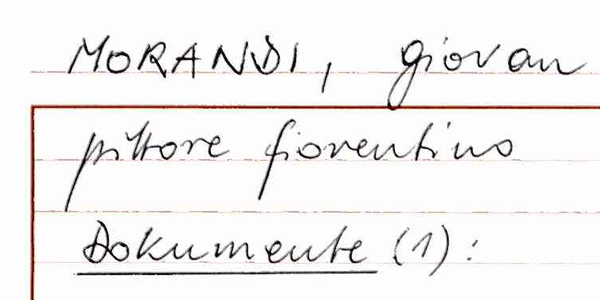 MORANDI, giovan
pittore fiorentino
Dokumente (1):